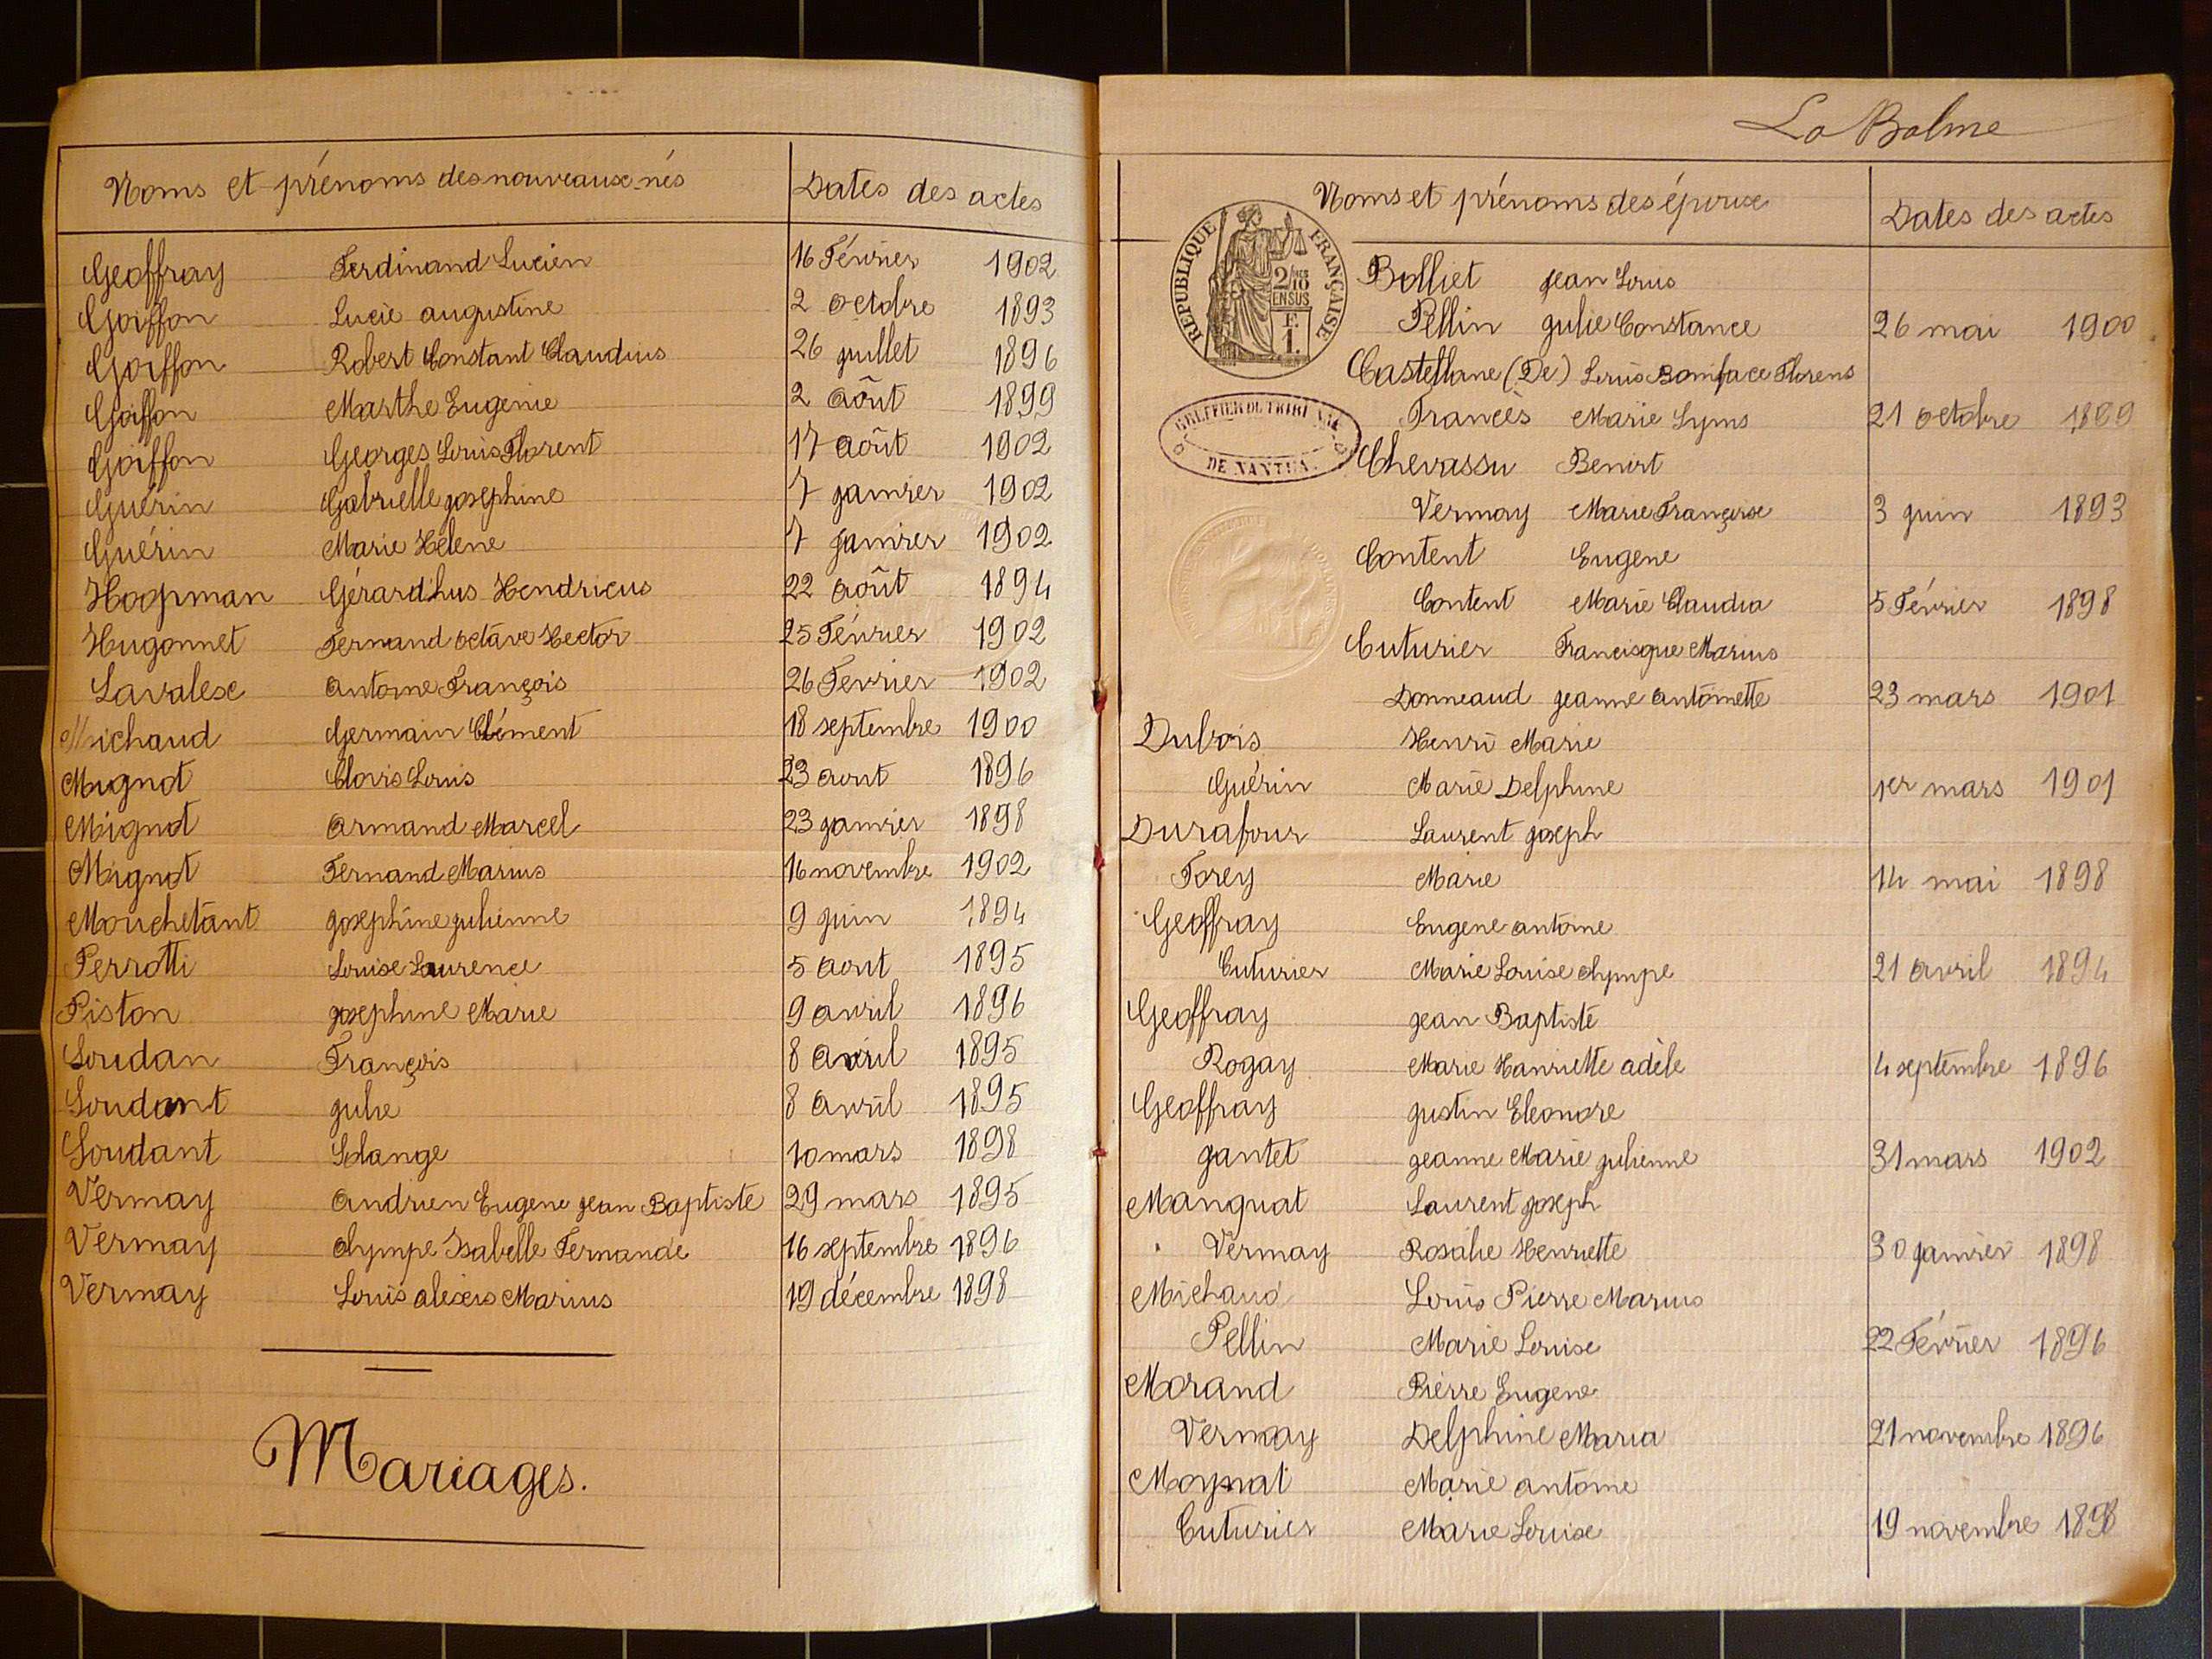 Noms et prénoms des nouveaux-nés Dates des actes
Geoffray Ferdinand Lucien 16 Février 1902
Goiffon Lucie augustine 2 octobre 1893
Goiffon Robert Constant Claudius 26 juillet 1896
Goiffon Marthe Eugénie 2 août 1899
Goiffon Georges Louis Florent 17 août 1902
Guérin Gabrielle josephine 7 janvier 1902
Guérin Marie Hélène 7 janvier 1902
Hoopman Gérard'hus Hendricus 22 août 1894
Hugonnet Fernand octave Hector 25 Février 1902
Lavalex antoine François 26 Fevrier 1902
Michaud Germain Clément 18 septembre 1900
Mignot Clovis Louis 23 aout 1896
Mignot armand Marcel 23 janvier 1898
Mignot Fernand Marius 16 novembre 1902
Mouchetant josephine julienne 9 juin 1894
Perrotti Louise Laurence 5 aout 1895
Piston josephine Marie 9 avril 1896
Soudan François 8 avril 1895
Soudant julie 8 avril 1895
Soudant Solange 10 mars 1898
Vermay andrien Eugene jean Baptiste 29 mars 1895
Vermay olympe Isabelle Fernande 16 septembre 1896
Vermay Louis alexis Marius 19 décembre 1898
Mariages.
La Balme
Noms et prénoms des époux Dates des actes
RÉPUBLIQUE FRANÇAISE
2/10 EN SUS
F. 1.
Bolliet jean Louis
Pellin julie Constance 26 mai 1900
Castellane (De) Louis Boniface Florens
Francès Marie Lyms 21 octobre 1899
GREFFIER DU TRIBUNAL
DE NANTUA
Chevassu Benoit
Vermay Marie Françoise 3 juin 1893
Content Eugene
Content Marie Claudia 5 Février 1898
Cuturier Francisque Marius
Donneaud jeanne antoinette 23 mars 1901
Dubois Henri Marie
Guérin Marie Delphine 1er mars 1901
Durafour Laurent joseph
Forey Marie 14 mai 1898
Geoffray Eugene antoine
Cuturier Marie Louise olympe 21 avril 1894
Geoffray jean Baptiste
Rogay Marie Hanriette adèle 4 septembre 1896
Geoffray justin Eleonore
jantet jeanne Marie julienne 31 mars 1902
Manquat Laurent joseph
Vermay Rosalie Henriette 30 janvier 1898
Michaud Louis Pierre Marius
Pellin Marie Louise 22 Février 1896
Morand Pierre Eugene
Vermay Delphine Maria 21 novembre 1896
Moynat Marie antoine
Cuturier Marie Louise 19 novembre 1898